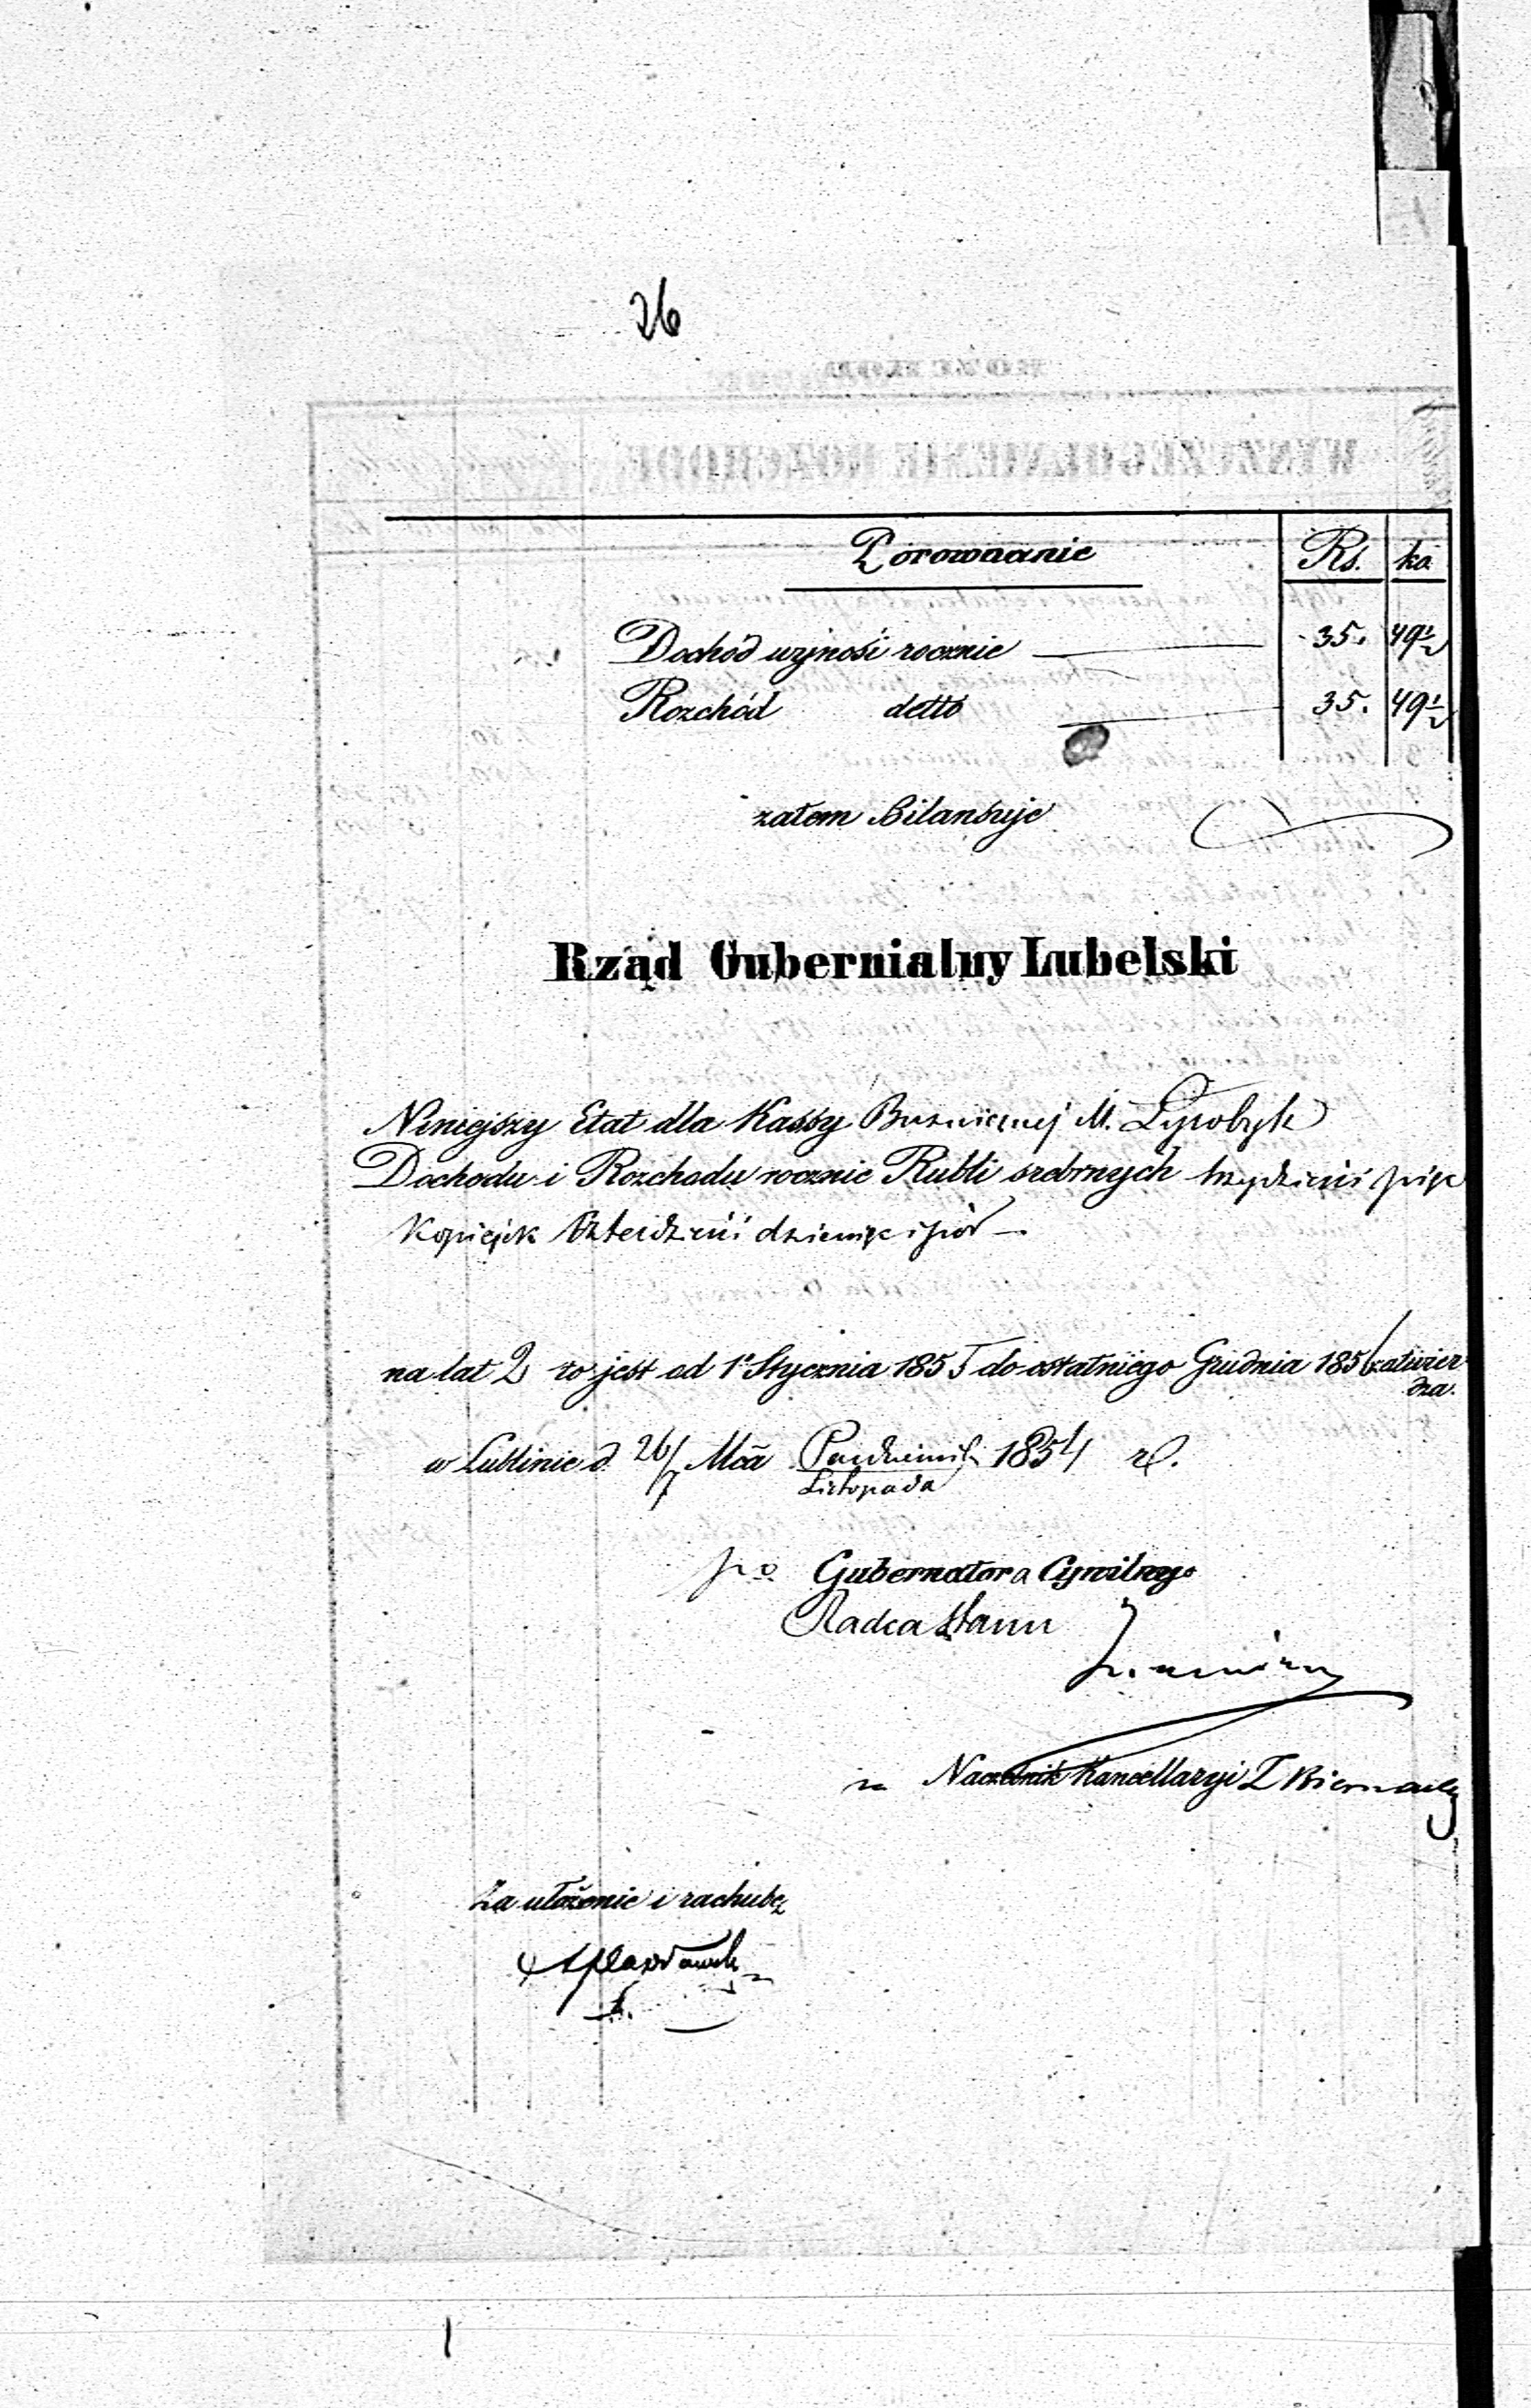 26
Porownanie Rs. ko.
Dochód wynosi rocznie 35. 49½
Rozchód detto 35. 49½
zatem Bilansuje
Rząd Gubernialny Lubelski
Niniejszy Etat dla Kassy Bużnicznej M.
Dochodu i Rozchodu rocznie Rubli srebrnych trzydzieści pięć
Kopiejek czterdzieści dziewięć i pół —
na lat 2 to jest od 1º Stycznia 1855 do ostatniego Grudnia 1856 zatwier-
dza.
w Lublinie d. 26/7 Mca Października/Listopada 1854 r.
po Gubernatora Cywilnego
Radca Stanu
za Naczelnik Kancellaryi T Biernacky
Za ułożenie i rachubę